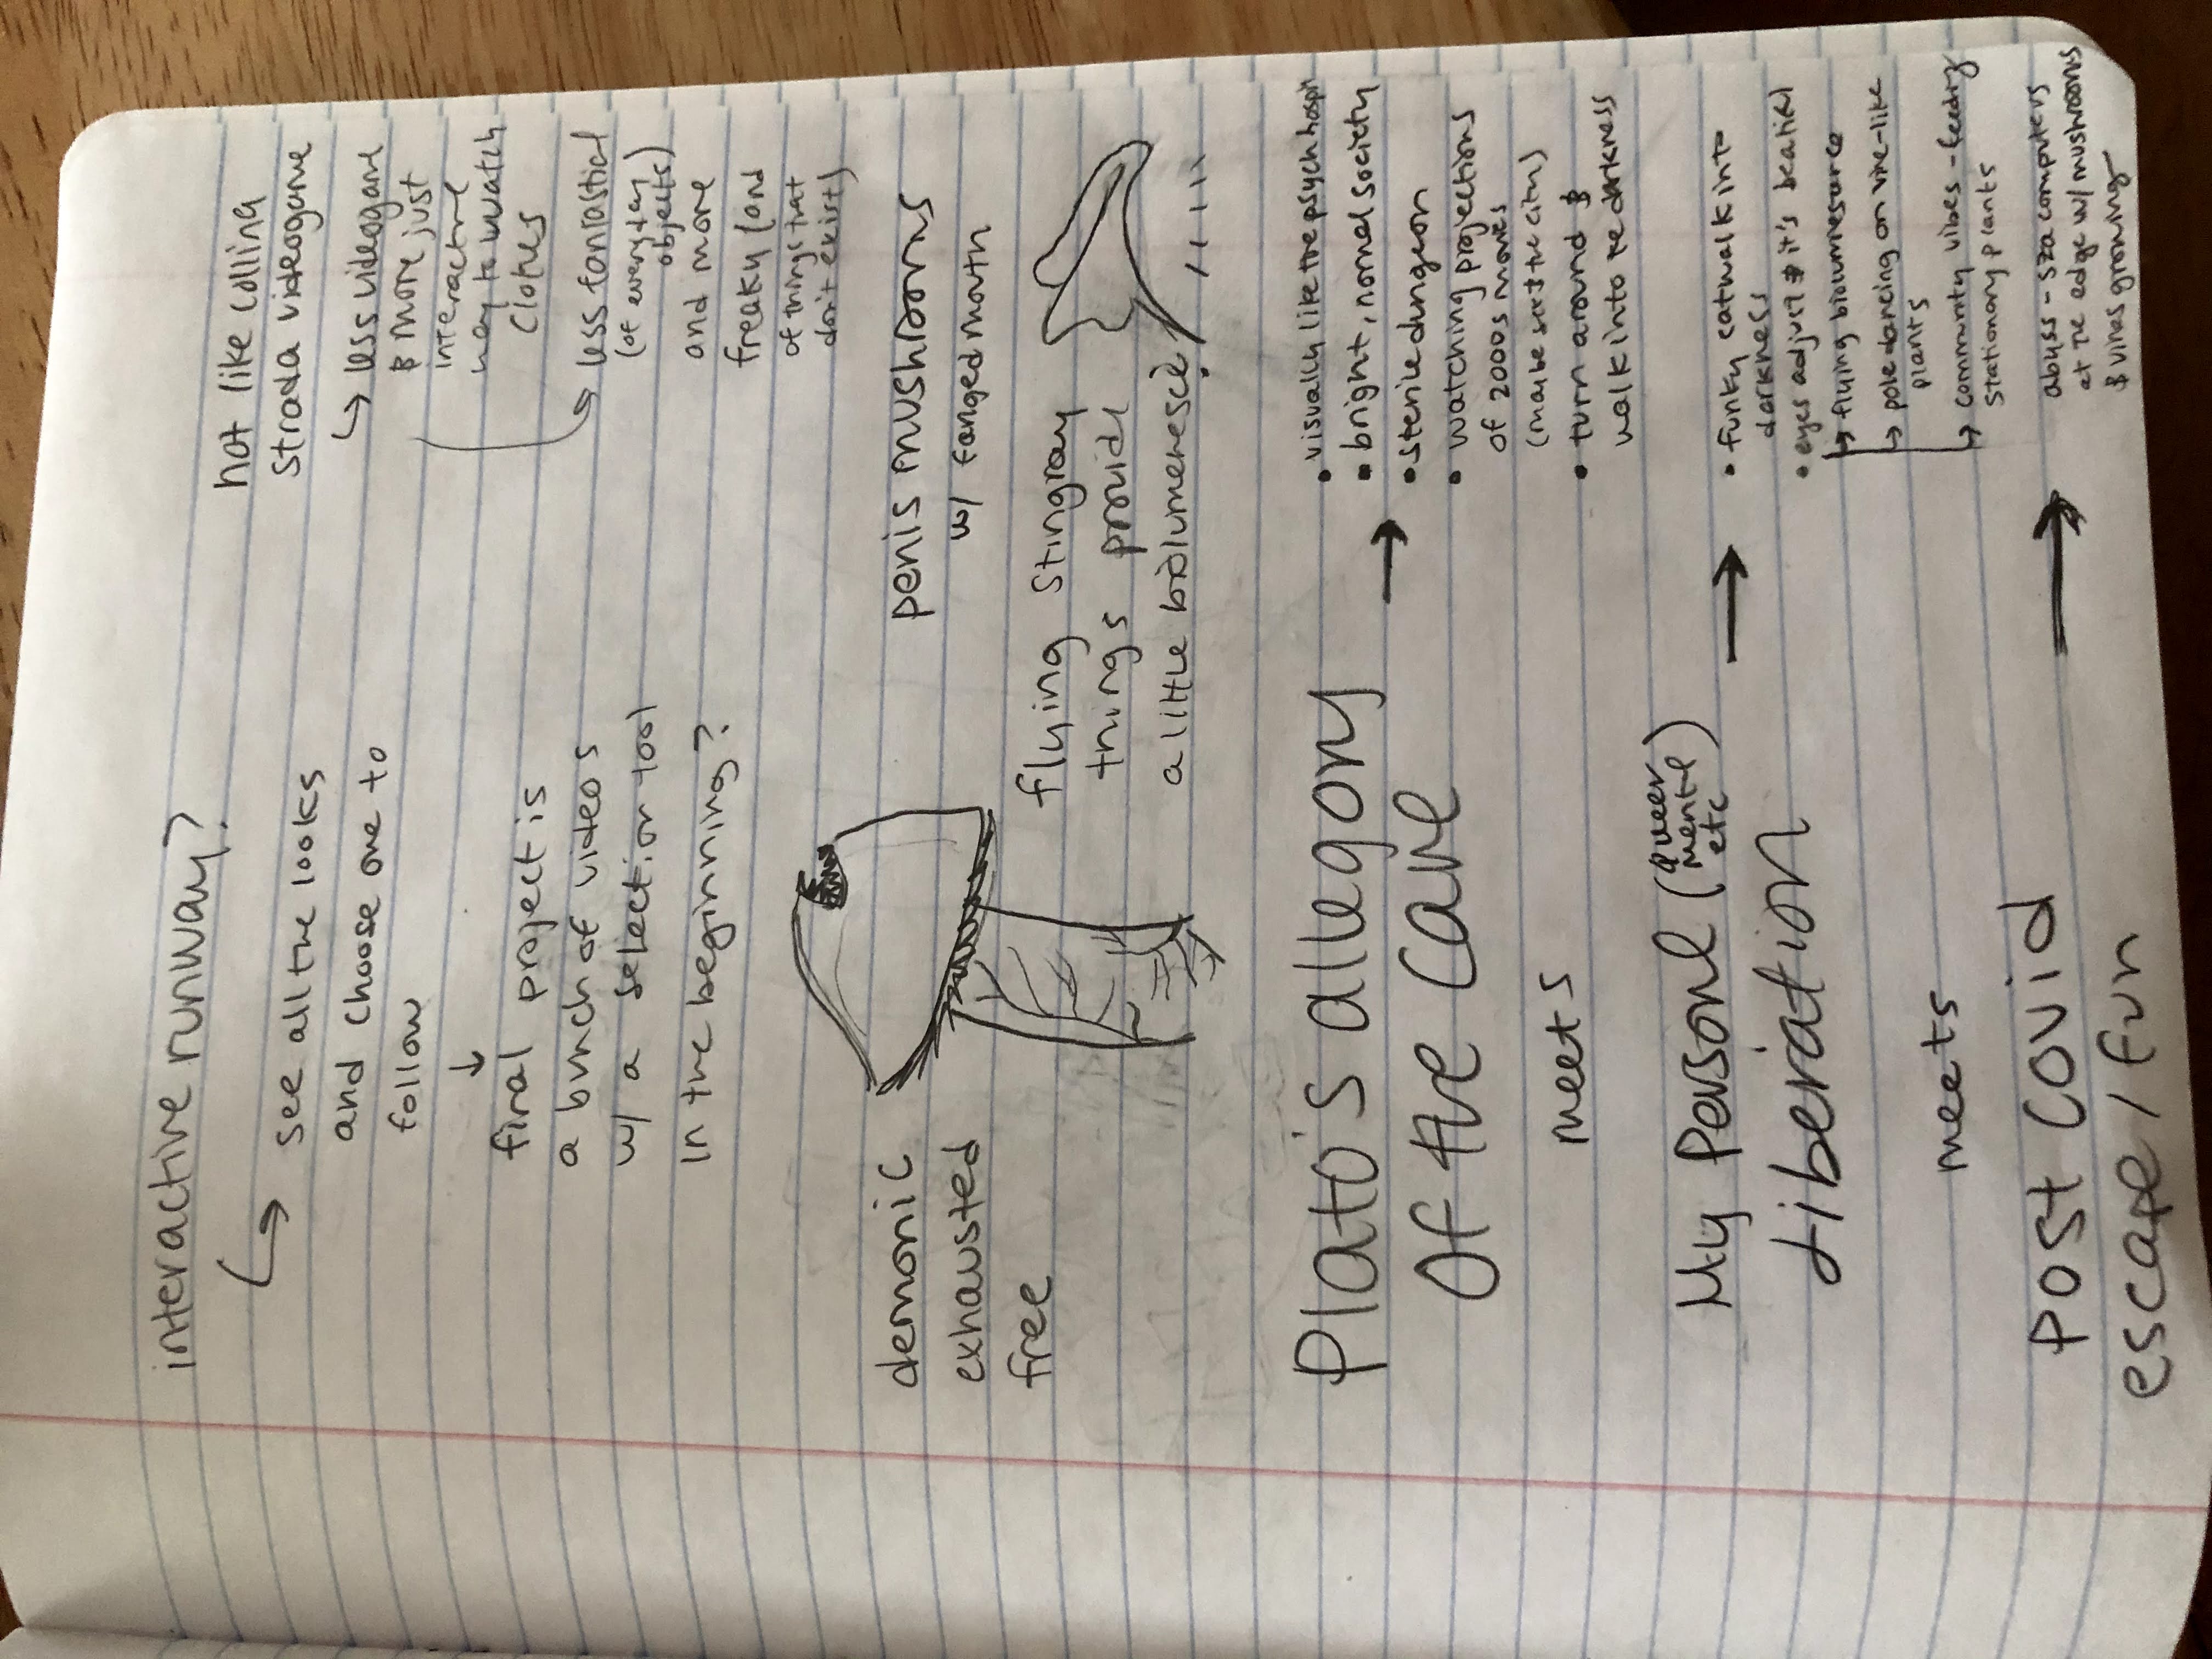 interactive runway?
see all the looks
and choose one to
follow
final project is
a bunch of videos
w/ a selection tool
in the beginning?
not like collina
strada videogame
less videogame
& more just
interactive
way to watch
clothes
less fantastical
(of everyday
objects)
and more
freaky (and
of things that
don't exist)
demonic
exhausted
free
penis mushrooms
w/ fanged mouth
flying stingray
things provide
a little biolumenesce?
Plato's allegory
of the cave
• visually like the psych hospit
• bright, normal society
• sterile dungeon
• watching projections
of 2000s movies
(maybe sex & the city)
• turn around &
walk into the darkness
meets
My Personal (queer
mental
etc)
Liberation
• funky catwalk into
darkness
• eyes adjust & it's beatiful
flying
pole dancing on vine-like
plants
community vibes - feeding
stationary plants
meets
Post Covid
escape / fun
abyss - sza computers
at the edge w/ mushrooms
& vines growing